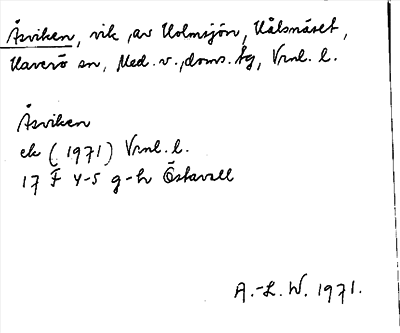 Åsviken, vik, av Holmsjön, Kålsnäset,
Haverö sn, Med. v., doms. tg, Vrnl. l.
Åsviken
ek (1971) Vrnl. l.
17 F 4-5 g-h Östavall
A.-L. W. 1971.